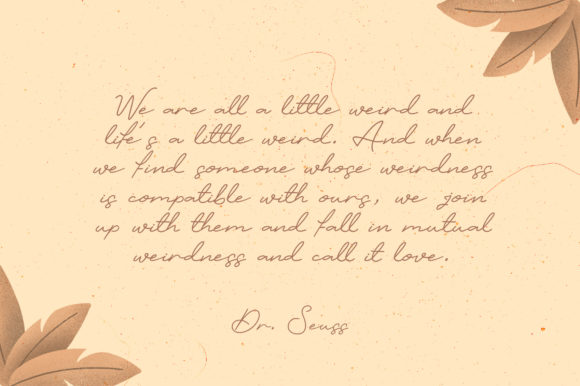 We are all a little weird and
life's a little weird. And when
we find someone whose weirdness
is compatible with ours, we join
up with them and fall in mutual
weirdness and call it love.
Dr. Seuss